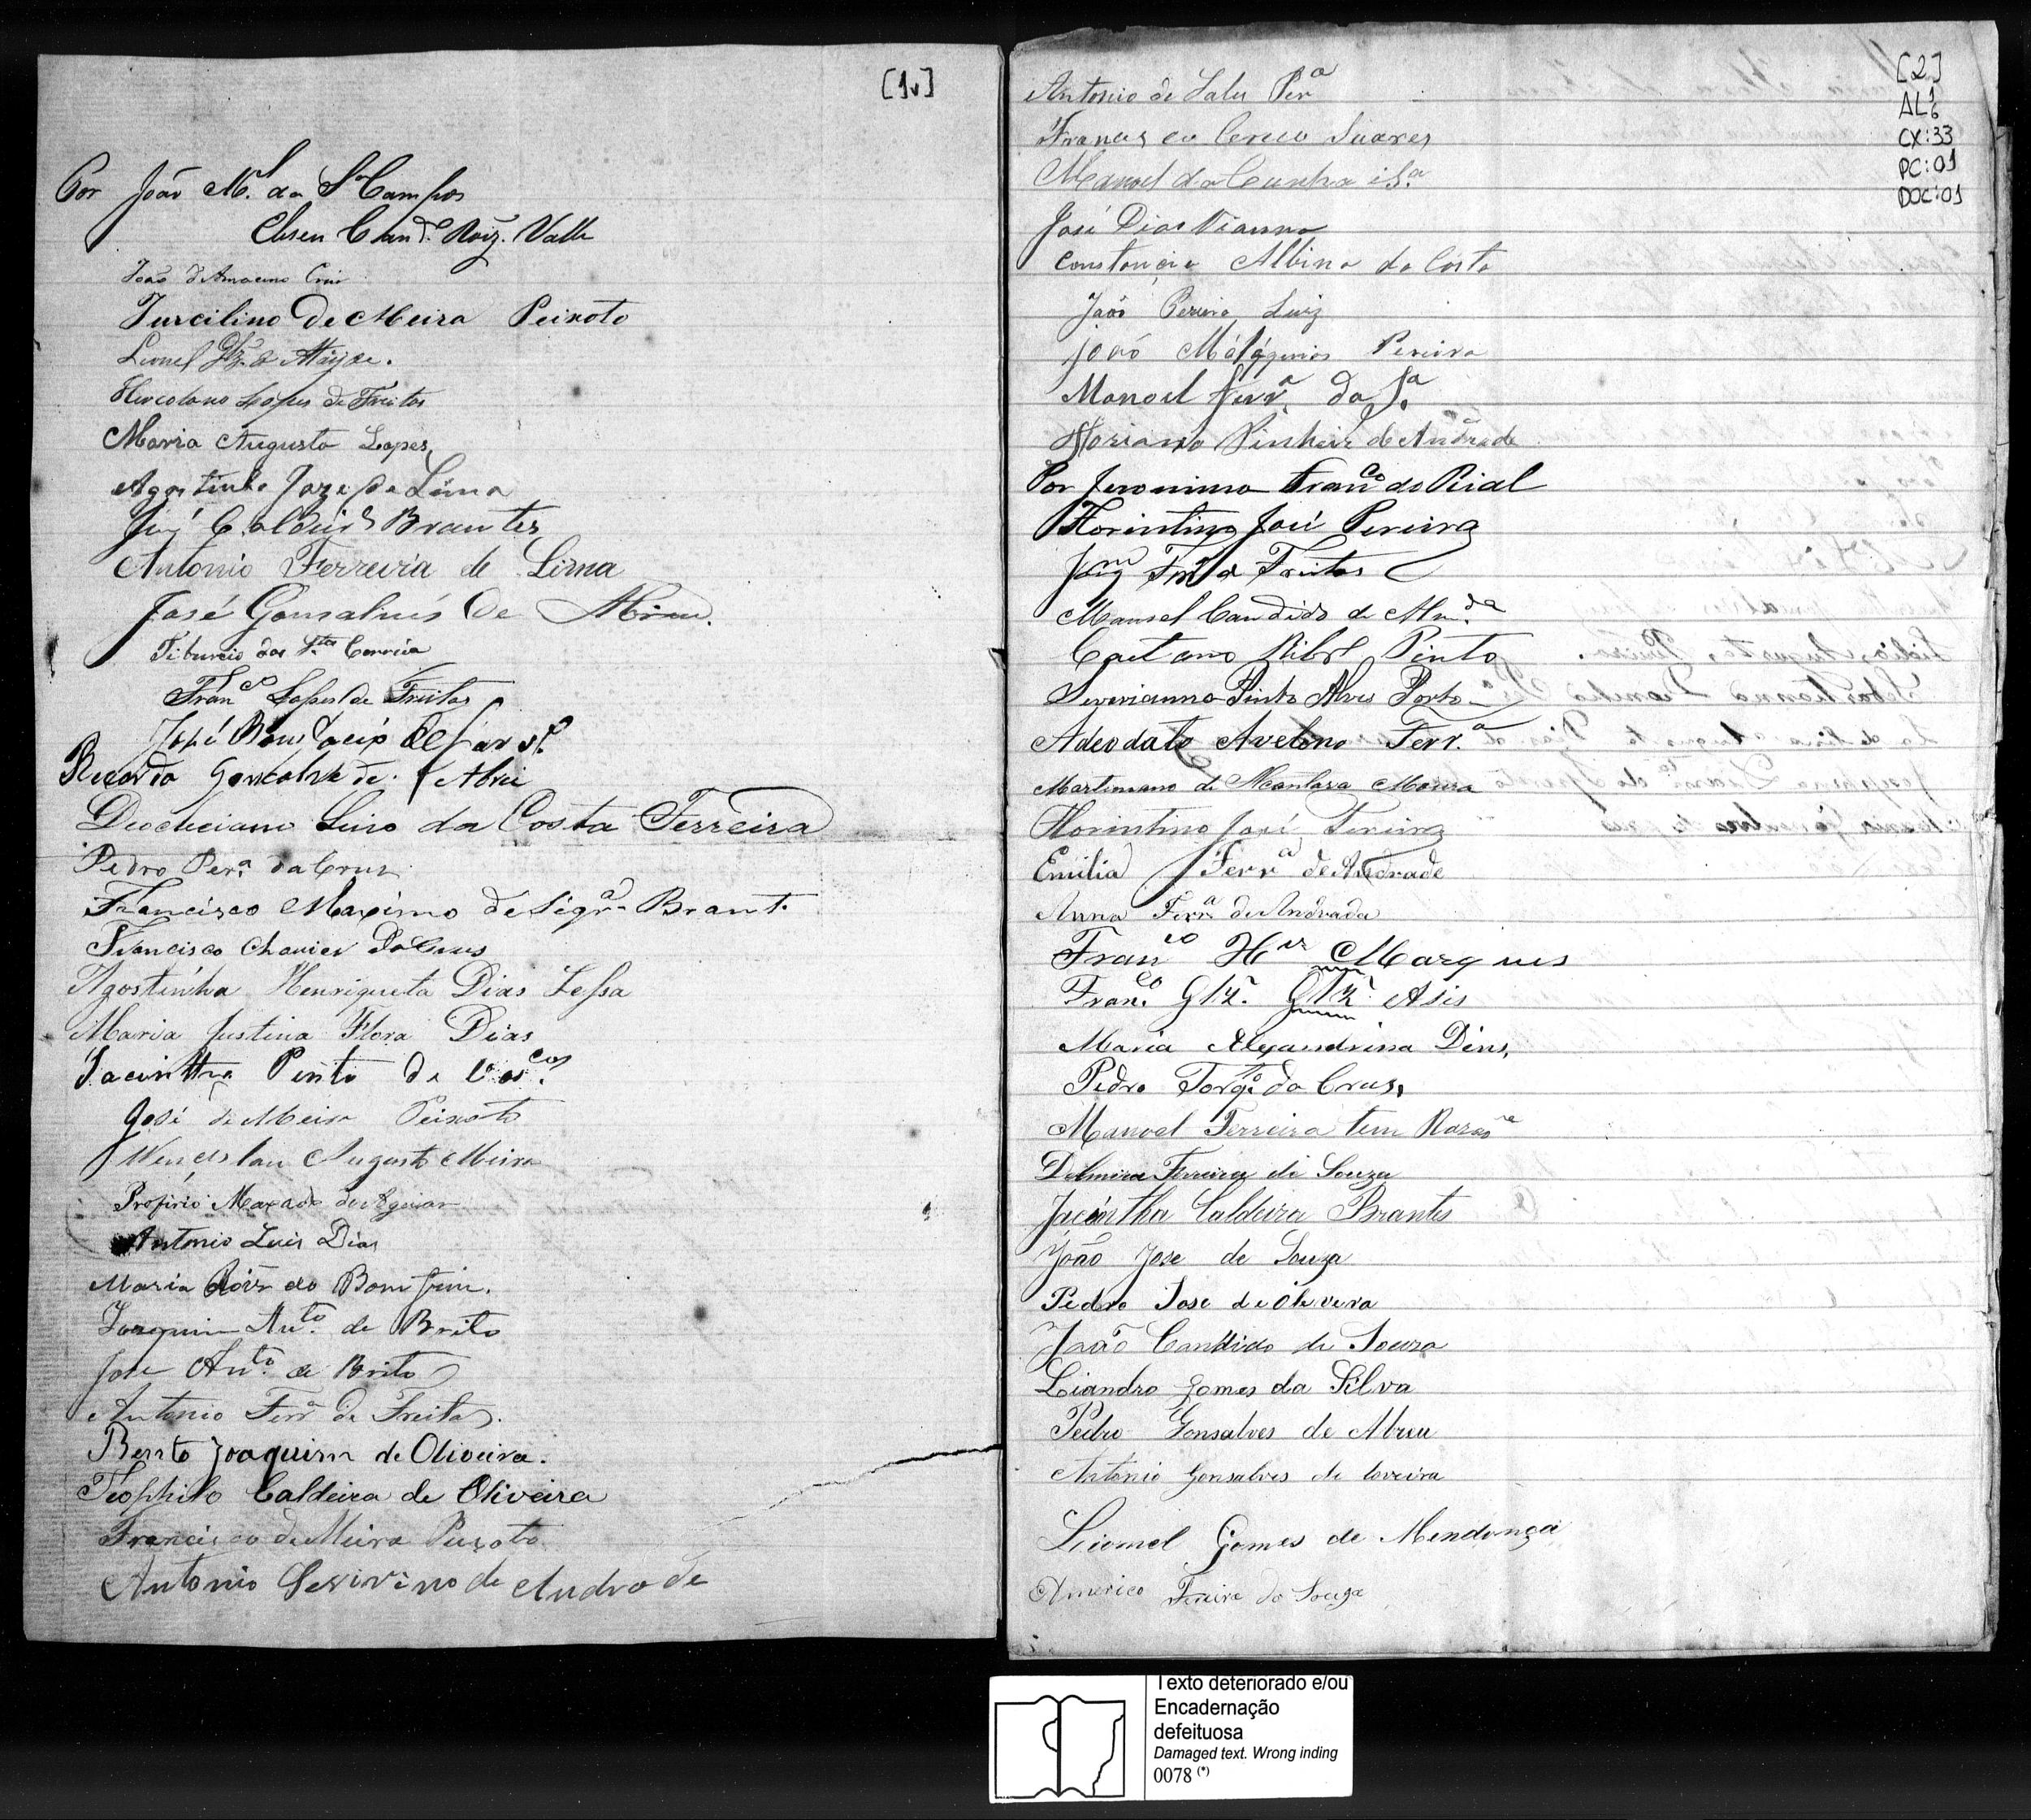 [1v]
Por João M.el da S.a Campos
Cand.o Roiz. Valle
João
Turcilino de Meira Peixoto
Leonel
Herculano Lopes de Freitas
Maria Augusta Lopes
Agostinho Joze de Lima
José Caldeir Brantes
Antonio Ferreira de Lima
José Gonsalves de Abreu.
Tiburcio dos S.tos Correia
Fran.co Lopes de Freitas
José Bonifacio
Ricardo de Abreu
Deocleciano Lino da Costa Ferreira
Pedro Per.a da Cruz
Francisco Maximo de Siqr.a Brant.
Francisco Chavier Da Crus
Agostinha Henriqueta Dias Lessa
Maria Justina Flora Dias
Jacintha Pinto de Vas.cos
José de Meira Peixoto
Wenceslau Augusto Meira
Profirio Maxado de Aguiar
Antonio Luis Dias
Maria do Bomfim.
Joaquim An.to de Brito
José An.to de Brito
Antonio Ferr.a de Freitas.
Bento Joaquim de Oliveira.
Teophilo Caldeira de Oliveira
Francisco de Meira Peixoto
Antonio Severino de Andrade
[2]
AL1
CX:33
PC:01
DOC:01
Antonio de Sales Per.a
Francisco Soares
Manoel da Cunha
José Dias Vianna
Constancia Albina da Costa
João Pereira Luiz
João Pereira
Manoel Ferr.a da S.a
Floriano Pinheiro de Andrade
Por Jeronimo Fran.co do Rial
Florintino José Pereira
Freitas
Manoel Candido de Alm.da
Caetano Rib.o Pinto
Severianno Pinto Alves Porto
Adeodato Avelino Ferr.a
Martiniano de Alcantara Moura
Florintino José Pereira
Emilia Ferr.a de Andrade
Anna Ferr.a de Andrada
Fran.co Marques
Fran.co Glz. Glz. Asis
Maria Alexandrina Dins.
Pedro Torq.to da Crus.
Manoel Ferreira
Delmira Ferreira de Souza
Jacintha Caldeira Brantes
João Jose de Souza
Pedro Jose de Olivera
João Candido de Souza
Liandro Gomes da Silva
Pedro Gonsalves de Abreu
Antonio Gonsalves de
Lionel Gomes de Mendonça
Americo Freire de Souza
Texto deteriorado e/ou
Encadernação
defeituosa
Damaged text. Wrong inding
0078 (*)